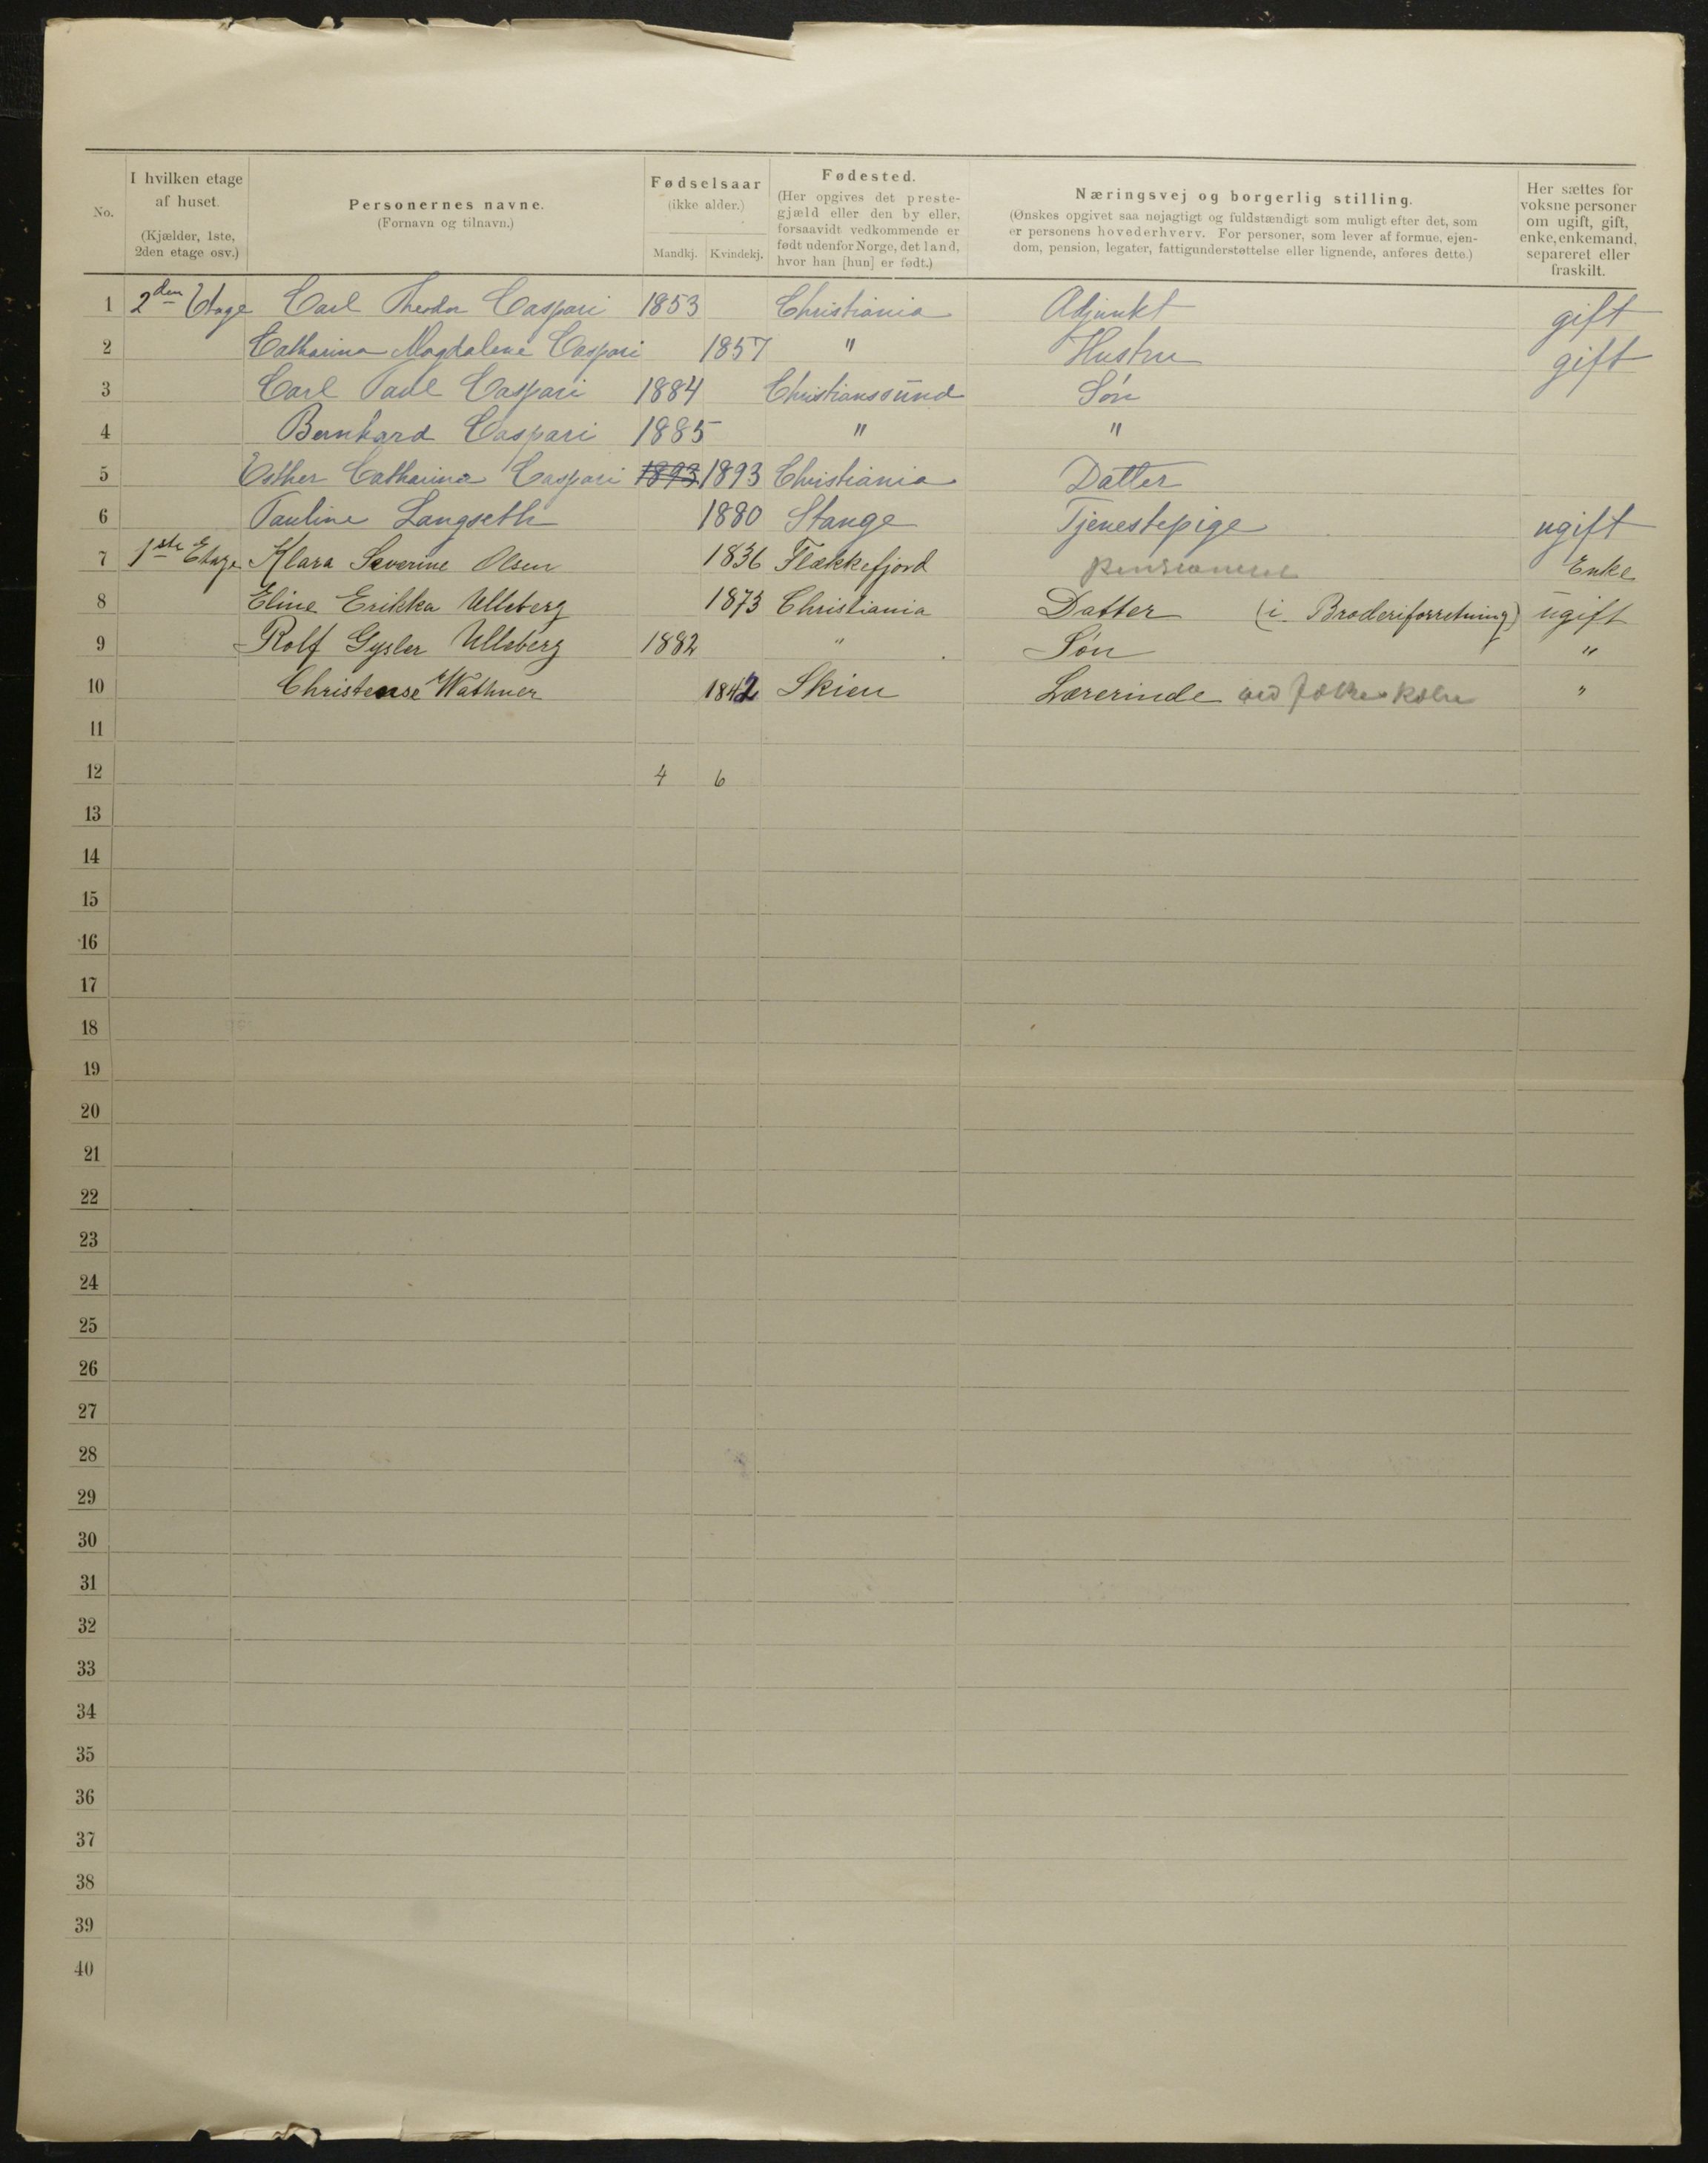 No.
I hvilken etage af huset.
(Kjælder, 1ste, 2den etage osv.)
Personernes navne.
(Fornavn og tilnavn.)
Fødselsaar
(ikke alder.)
Mandkj. Kvindekj.
Fødested.
(Her opgives det preste-
gjæld eller den by eller,
forsaavidt vedkommende er
født udenfor Norge, det land,
hvor han [hun] er født.)
Næringsvej og borgerlig stilling.
(Ønskes opgivet saa nøjagtigt og fuldstændigt som muligt efter det, som
er personens hovederhverv. For personer, som lever af formue, ejen-
dom, pension, legater, fattigunderstøttelse eller lignende, anføres dette.)
Her sættes for
voksne personer
om ugift, gift,
enke, enkemand,
separeret eller
fraskilt.
1 2den Etage Carl Theodor Caspari 1853 Christiania Adjunkt gift
2 Catharina Magdalene Caspari 1857 " Hustru gift
3 Carl Paul Caspari 1884 Christianssund Søn
4 Bernhard Caspari 1885 " "
5 Esther Catharina Caspari 1893 1893 Christiania Datter
6 Pauline Langseth 1880 Stange Tjenestepige ugift
7 1ste Etage Klara Severine Olsen 1836 Flekkefjord Enke
8 Eline Erikka Ulleberg 1873 Christiania Datter (i Broderiforretning) ugift
9 Rolf Gysler Ulleberg 1882 " Søn "
10 Christense Wathner 1842 Skien Lærerinde ved Folkeskolen "
11
12 4 6
13
14
15
16
17
18
19
20
21
22
23
24
25
26
27
28
29
30
31
32
33
34
35
36
37
38
39
40